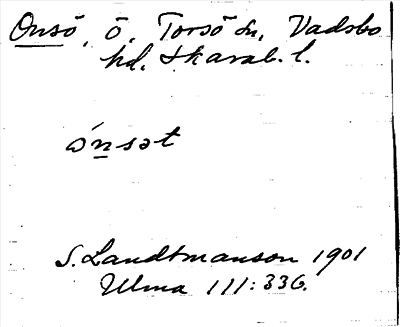 Onsö, ö, Torsö sn, Vadsbo
hd. Skarab. l.
ó̱nsət
S. Landtmanson 1901
Ulma 111:336.